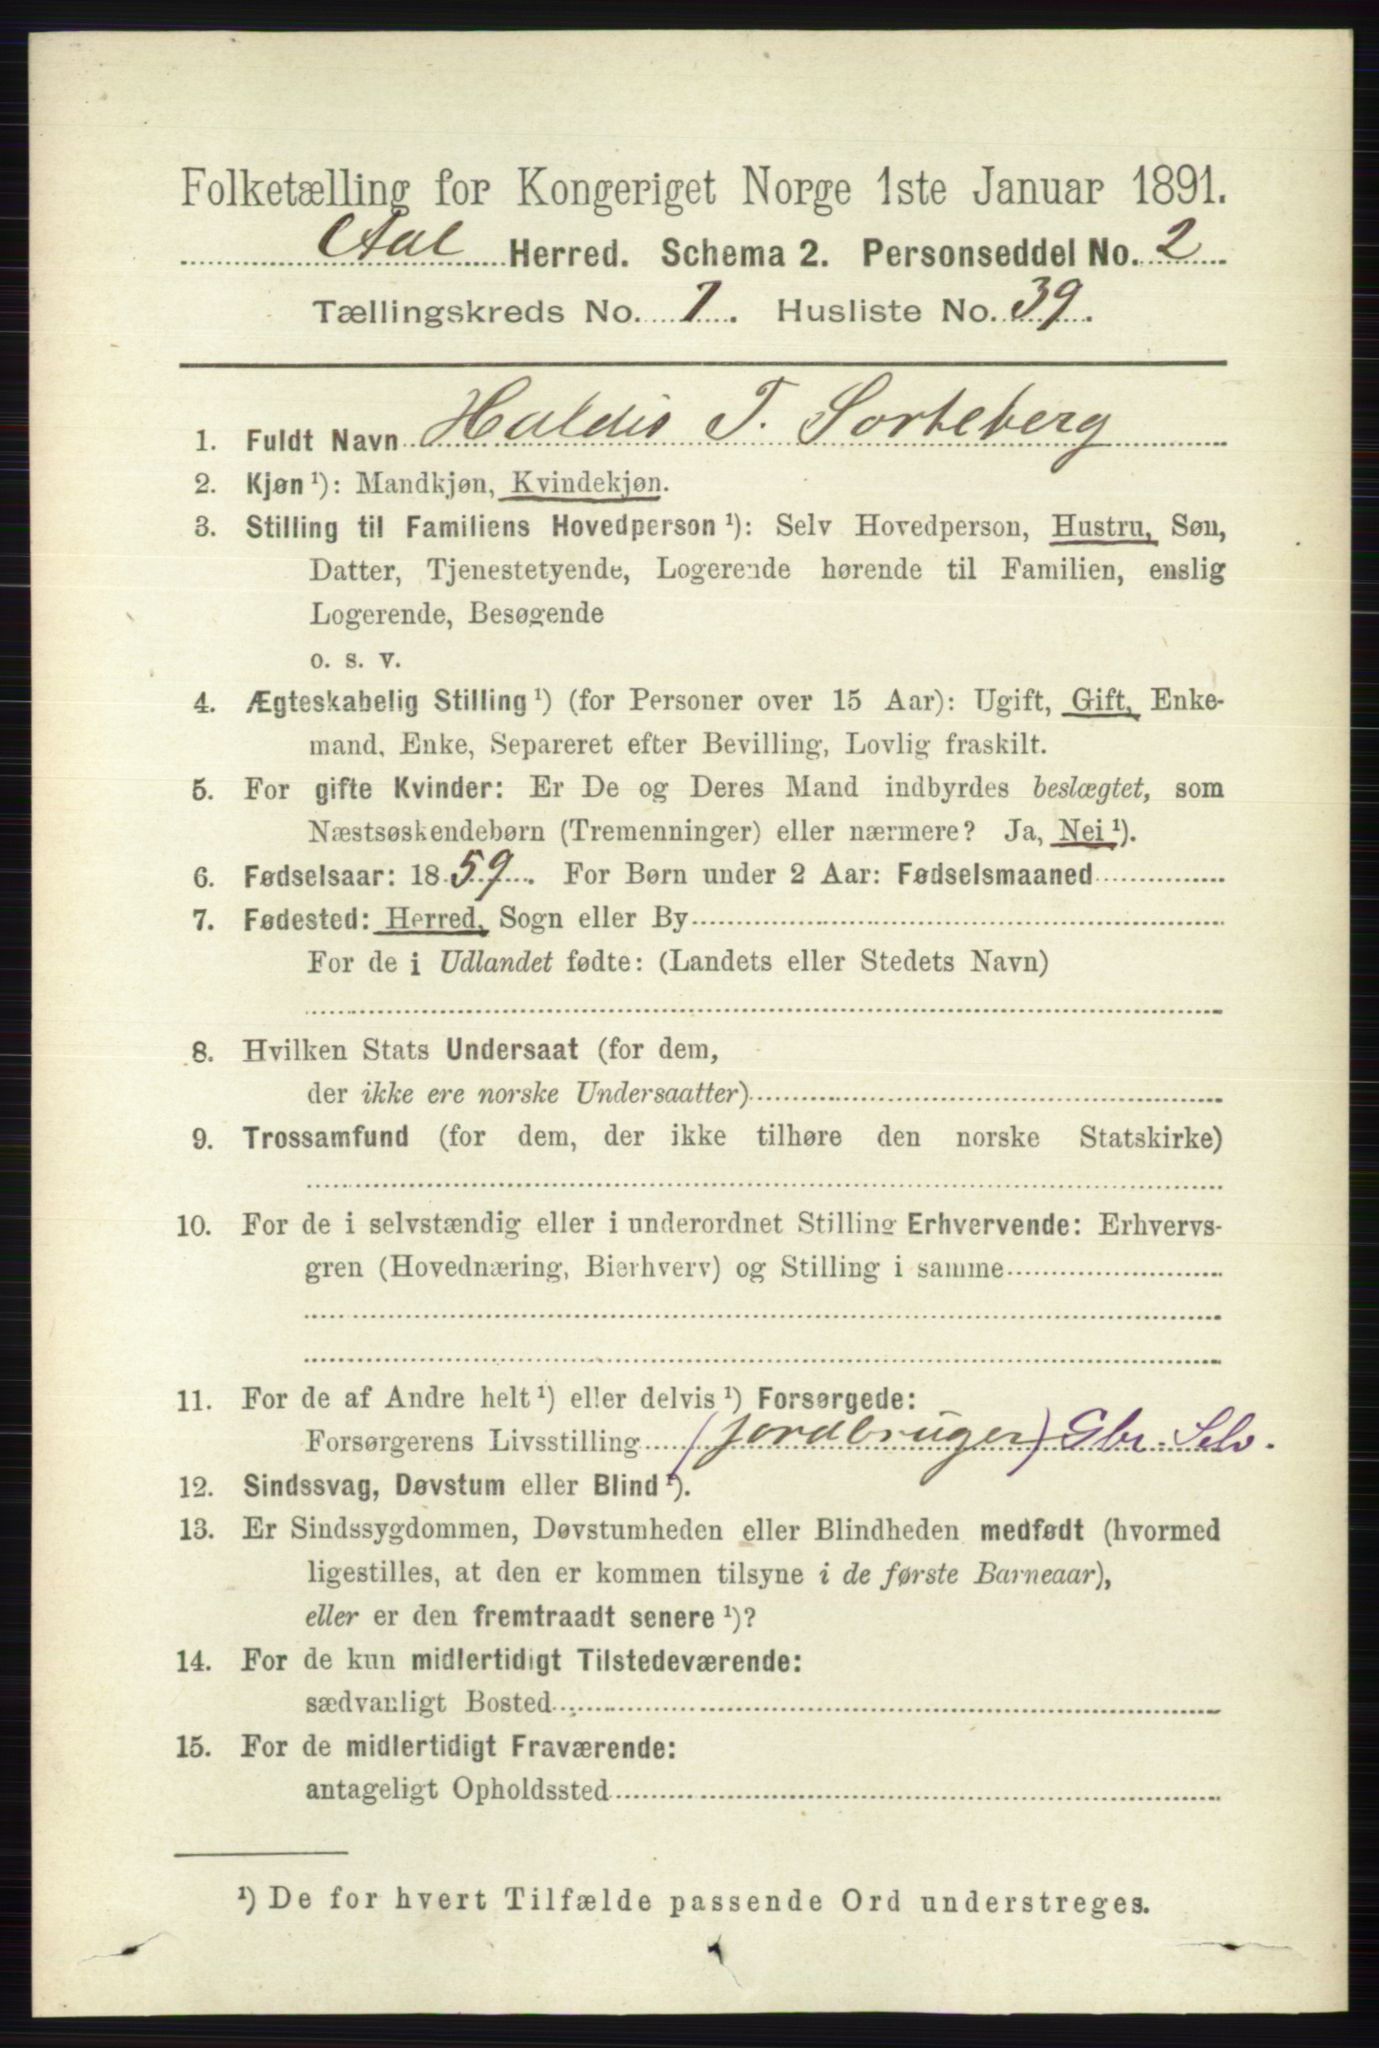 Folketælling for Kongeriget Norge 1ste Januar 1891.
Aal Herred. Schema 2. Personseddel No. 2
Tællingskreds No. 1. Husliste No. 39.
1. Fuldt Navn Haldis T. Sorteberg
2. Kjøn ¹): Mandkjøn, Kvindekjøn.
3. Stilling til Familiens Hovedperson ¹): Selv Hovedperson, Hustru, Søn,
Datter, Tjenestetyende, Logerende hørende til Familien, enslig
Logerende, Besøgende
o. s. v.
4. Ægteskabelig Stilling ¹) (for Personer over 15 Aar): Ugift, Gift, Enke-
mand, Enke, Separeret efter Bevilling, Lovlig fraskilt.
5. For gifte Kvinder: Er De og Deres Mand indbyrdes beslægtet, som
Næstsøskendebørn (Tremenninger) eller nærmere? Ja, Nei ¹).
6. Fødselsaar: 1859. For Børn under 2 Aar: Fødselsmaaned
7. Fødested: Herred, Sogn eller By
For de i Udlandet fødte: (Landets eller Stedets Navn)
8. Hvilken Stats Undersaat (for dem,
der ikke ere norske Undersaatter)
9. Trossamfund (for dem, der ikke tilhøre den norske Statskirke)
10. For de i selvstændig eller i underordnet Stilling Erhvervende: Erhvervs-
gren (Hovednæring, Bierhverv) og Stilling i samme
11. For de af Andre helt ¹) eller delvis ¹) Forsørgede:
Forsørgerens Livsstilling (jordbruger) Gbr. Selv.
12. Sindssvag, Døvstum eller Blind ¹).
13. Er Sindssygdommen, Døvstumheden eller Blindheden medfødt (hvormed
ligestilles, at den er kommen tilsyne i de første Barneaar),
eller er den fremtraadt senere ¹)?
14. For de kun midlertidigt Tilstedeværende:
sædvanligt Bosted
15. For de midlertidigt Fraværende:
antageligt Opholdssted
¹) De for hvert Tilfælde passende Ord understreges.